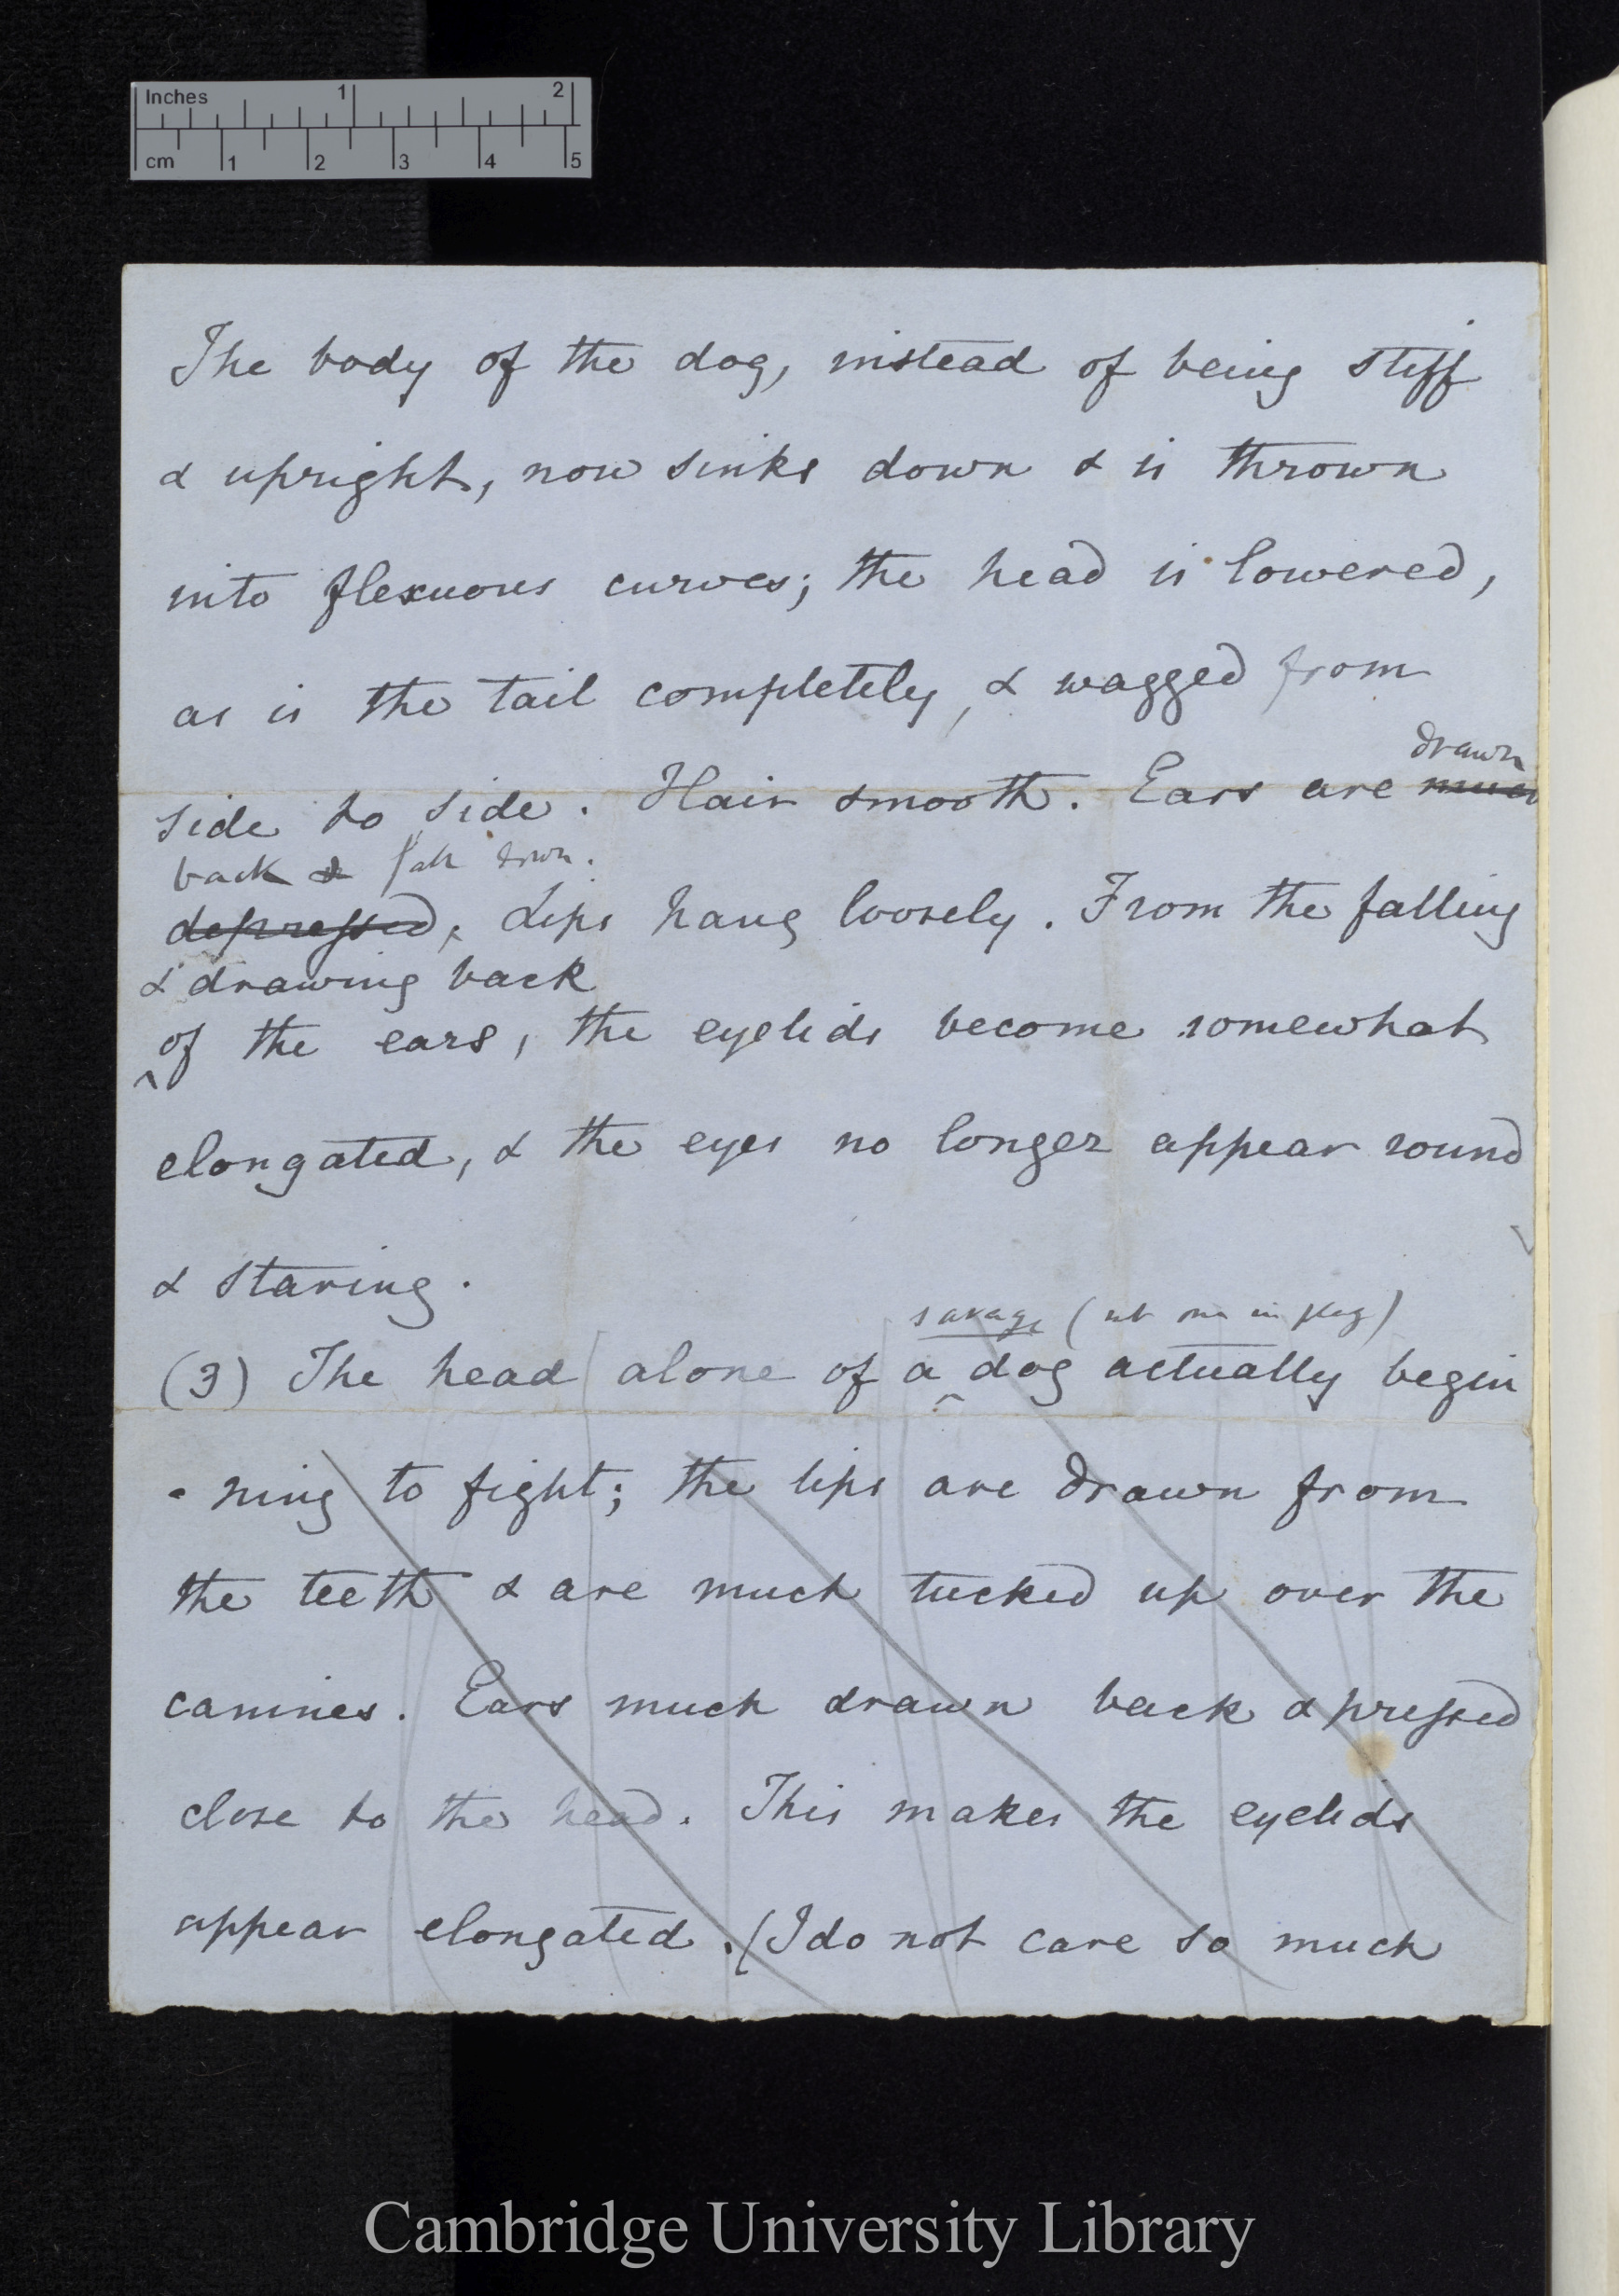 Inches 1 2
cm 1 2 3 4 5
The body of the dog, instead of being stiff
& upright, now sinks down & is thrown
into flexuous curves; the head is lowered,
as is the tail completely, & wagged from
drawn
side to side. Hair smooth. Ears are much
back & fall down.
depressed, Lips hang loosely. From the falling
& drawing back
of the ears, the eyelids become somewhat
^
elongated, & the eyes no longer appear round
& staring.
savage (not one in play)
(3) The head alone of a ^ dog actually begin
-ning to fight; the lips are drawn from
the teeth & are much tucked up over the
canines. Ears much drawn back & pressed
close to the head. This makes the eyelids
appear elongated. (I do not care so much
Cambridge University Library